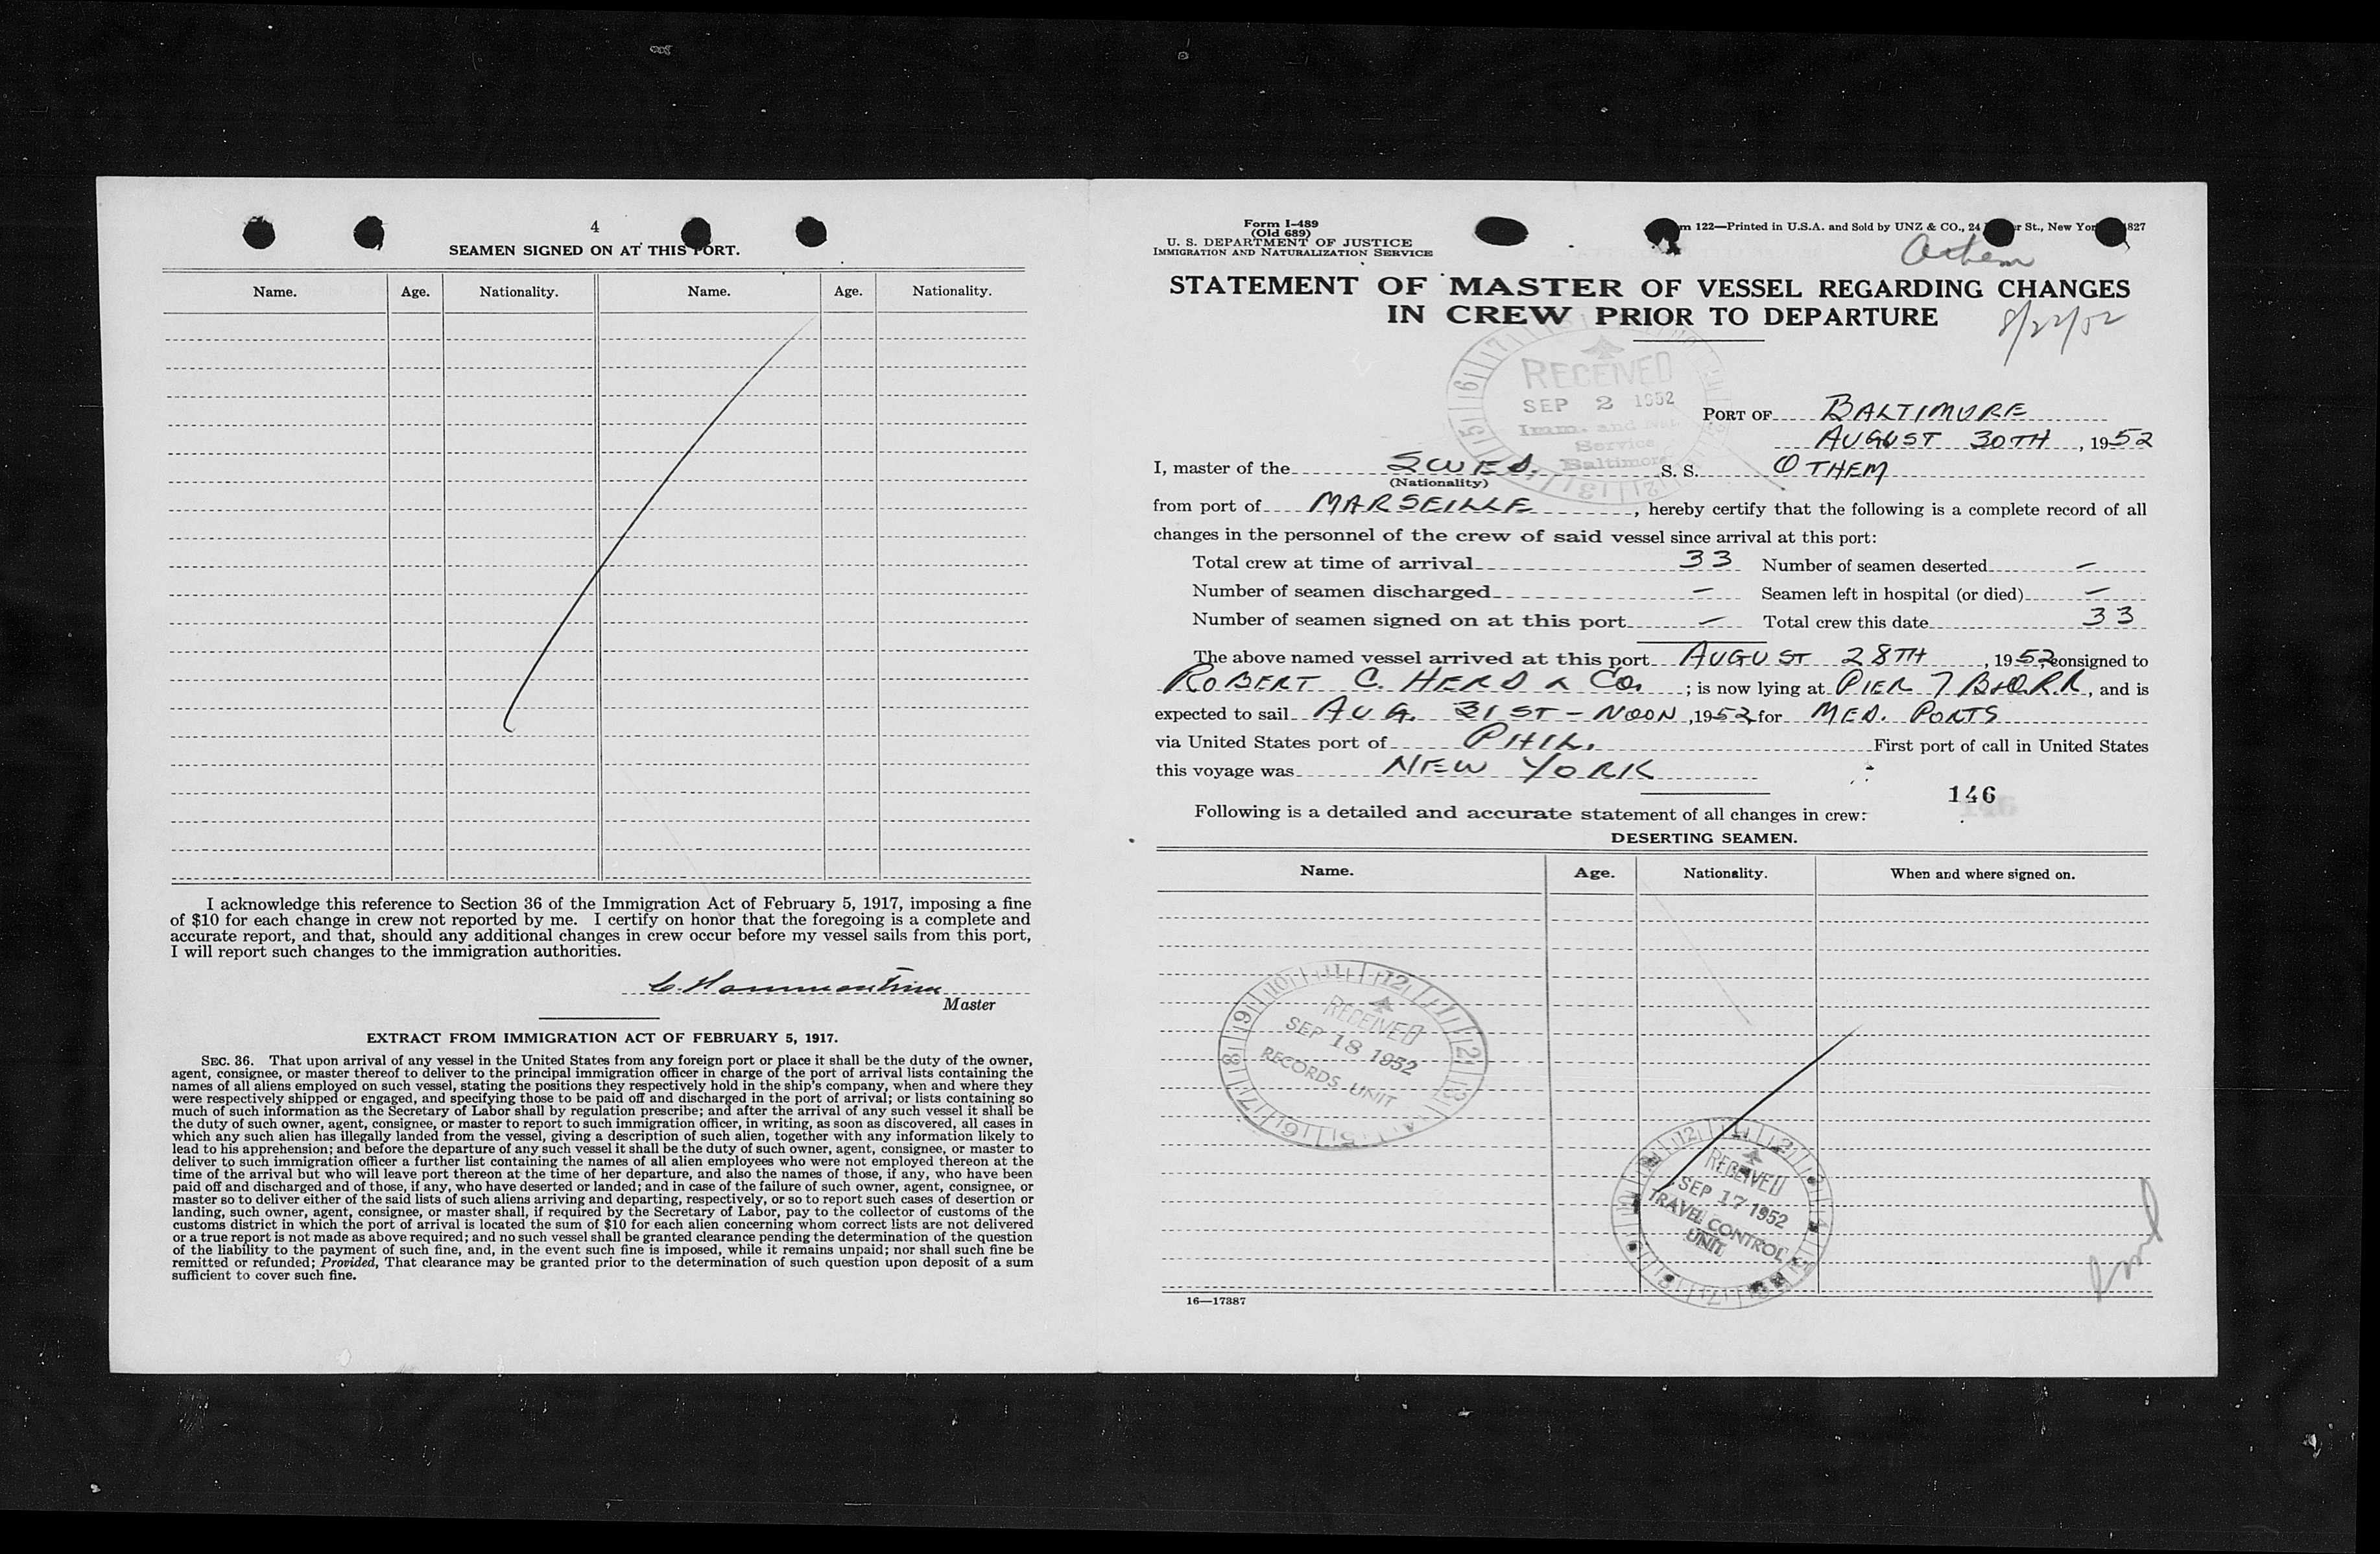 4
SEAMEN SIGNED ON AT THIS PORT.
Name. Age. Nationality. Name. Age. Nationality.
I acknowledge this reference to Section 36 of the Immigration Act of February 5, 1917, imposing a fine
of $10 for each change in crew not reported by me. I certify on honor that the foregoing is a complete and
accurate report, and that, should any additional changes in crew occur before my vessel sails from this port,
I will report such changes to the immigration authorities.
Master
EXTRACT FROM IMMIGRATION ACT OF FEBRUARY 5, 1917.
SEC. 36. That upon arrival of any vessel in the United States from any foreign port or place it shall be the duty of the owner,
agent, consignee, or master thereof to deliver to the principal immigration officer in charge of the port of arrival lists containing the
names of all aliens employed on such vessel, stating the positions they respectively hold in the ship's company, when and where they
were respectively shipped or engaged, and specifying those to be paid off and discharged in the port of arrival; or lists containing so
much of such information as the Secretary of Labor shall by regulation prescribe; and after the arrival of any such vessel it shall be
the duty of such owner, agent, consignee, or master to report to such immigration officer, in writing, as soon as discovered, all cases in
which any such alien has illegally landed from the vessel, giving a description of such alien, together with any information likely to
lead to his apprehension; and before the departure of any such vessel it shall be the duty of such owner, agent, consignee, or master to
deliver to such immigration officer a further list containing the names of all alien employees who were not employed thereon at the
time of the arrival but who will leave port thereon at the time of her departure, and also the names of those, if any, who have been
paid off and discharged and of those, if any, who have deserted or landed; and in case of the failure of such owner, agent, consignee, or
master so to deliver either of the said lists of such aliens arriving and departing, respectively, or so to report such cases of desertion or
landing, such owner, agent, consignee, or master shall, if required by the Secretary of Labor, pay to the collector of customs of the
customs district in which the port of arrival is located the sum of $10 for each alien concerning whom correct lists are not delivered
or a true report is not made as above required; and no such vessel shall be granted clearance pending the determination of the question
of the liability to the payment of such fine, and, in the event such fine is imposed, while it remains unpaid; nor shall such fine be
remitted or refunded; Provided, That clearance may be granted prior to the determination of such question upon deposit of a sum
sufficient to cover such fine.
Form I-489
(Old 689)
U. S. DEPARTMENT OF JUSTICE
IMMIGRATION AND NATURALIZATION SERVICE
m 122—Printed in U.S.A. and Sold by UNZ & CO., 24 r St., New Yor 827
STATEMENT OF MASTER OF VESSEL REGARDING CHANGES
IN CREW PRIOR TO DEPARTURE
RECEIVED
SEP 2 1952
Imm. and Nat.
Service
Baltimore
PORT OF BALTIMORE
AUGUST 30TH, 1952
I, master of the SWED. S. S. OTHEM
(Nationality)
from port of MARSEILLE, hereby certify that the following is a complete record of all
changes in the personnel of the crew of said vessel since arrival at this port:
Total crew at time of arrival 33 Number of seamen deserted —
Number of seamen discharged — Seamen left in hospital (or died) —
Number of seamen signed on at this port — Total crew this date 33
The above named vessel arrived at this port AUGUST 28TH, 1952, consigned to
ROBERT C. HERD & CO.; is now lying at PIER 7 B&O.R.R, and is
expected to sail AUG. 31ST - NOON, 1952 for MED. PORTS
via United States port of PHIL. First port of call in United States
this voyage was NEW YORK
146
Following is a detailed and accurate statement of all changes in crew:
DESERTING SEAMEN.
Name. Age. Nationality. When and where signed on.
RECEIVED
SEP 18 1952
RECORDS UNIT
RECEIVED
SEP 17 1952
TRAVEL CONTROL
UNIT
16—17387